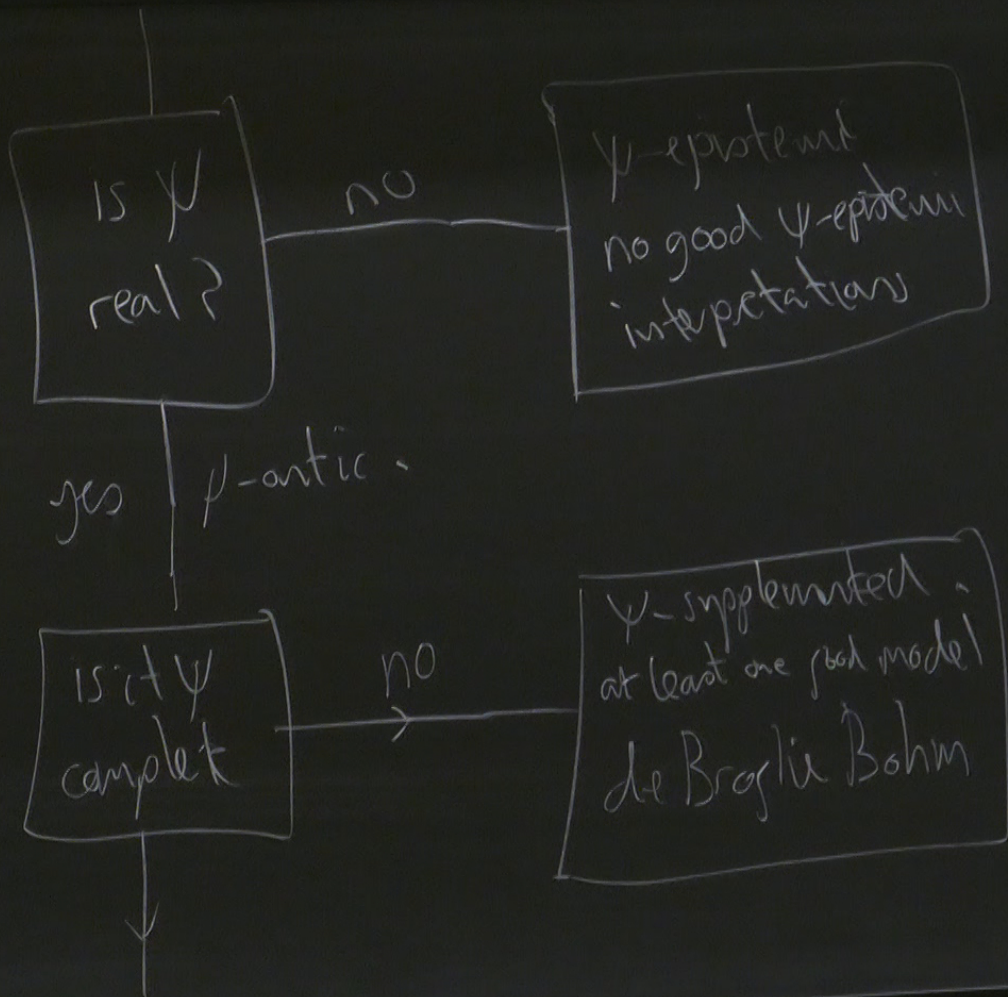 is ψ
real?
no
ψ-epistemi
no good ψ-epistemi
interpretations
yes
ψ-ontic.
is it ψ
complet
no
ψ-supplemented.
at least one good model
de Broglie Bohm